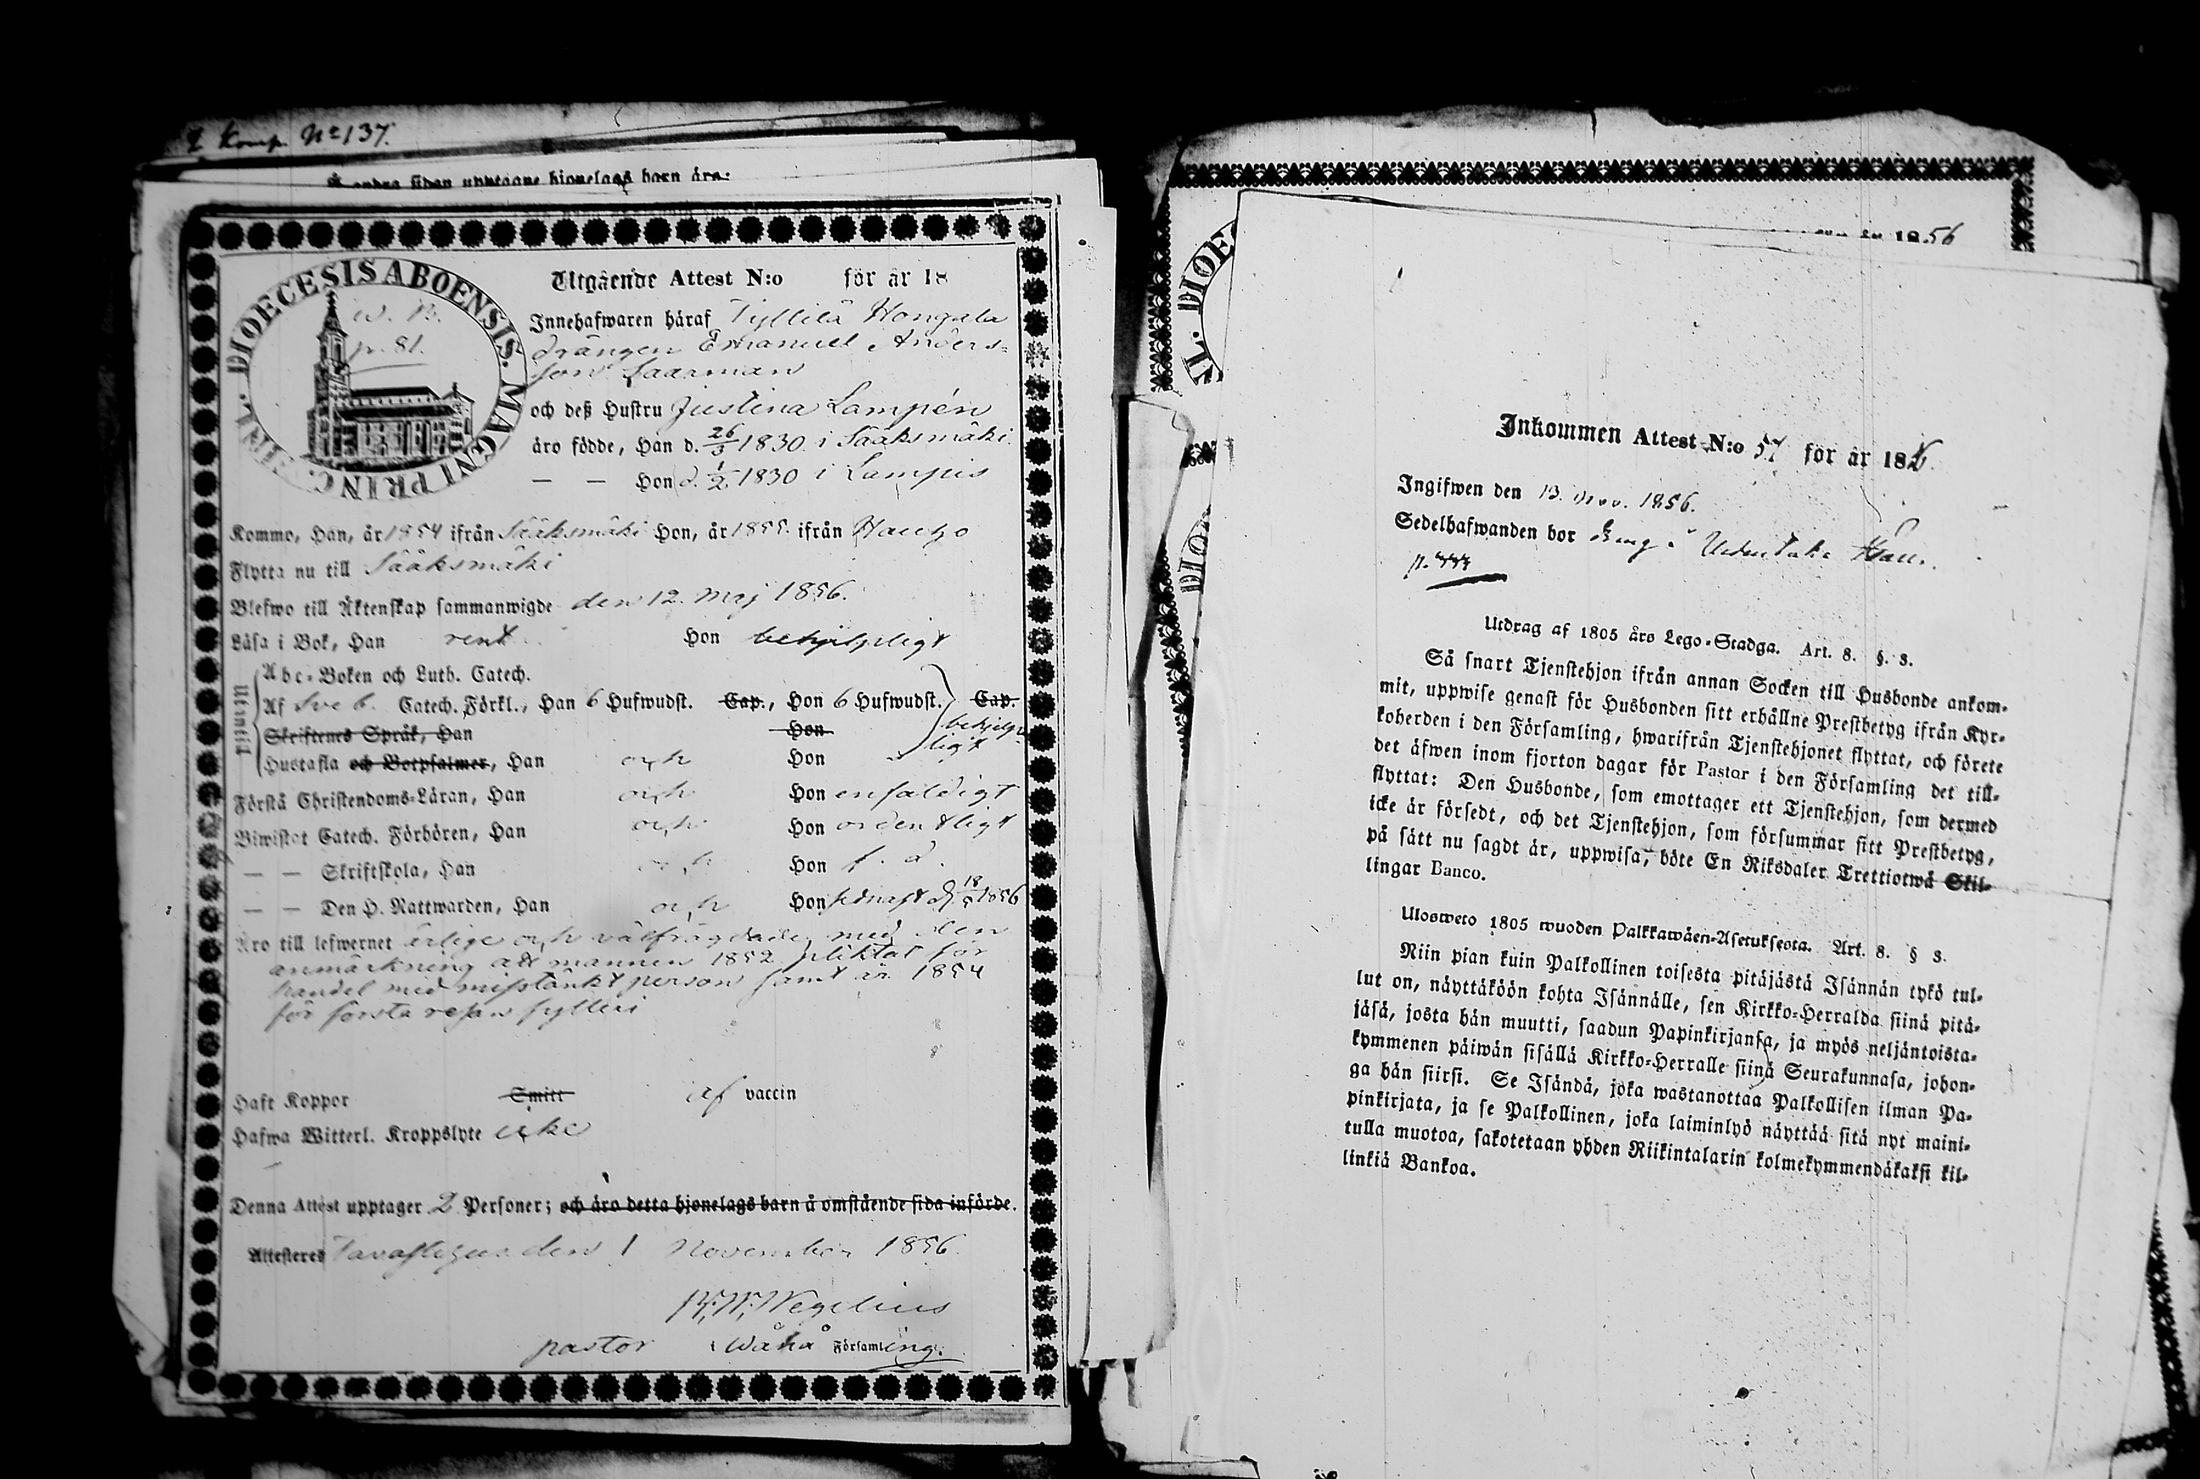 Komp. No 137.
å andra sidan upptagne hjonelags barn äro:
DIOECESIS ABOENSIS. MAGNI PRINC. FINL.
W. B.
p. 81.
Utgående Attest N:o för år 18
Innehafwaren häraf Tyllilä Hongala
drängen Emanuel Anders-
son Saarman
och deß Hustru Justina Lampén
äro födde, Han d. 26/3 1830 i Sääksmäki
— — Hon d. 1/2 1830 i Lampis
Kommo, Han, år 1854 ifrån Sääksmäki Hon, år 1855 ifrån Hauho
Flytta nu till Sääksmäki
Blefwo till Äktenskap sammanwigde den 12 Maj 1856.
Läsa i Bok, Han rent Hon behjelpligt
Utantill
Abc-Boken och Luth. Catech.
Af Sveb. Catech. Förkl., Han 6 Hufwudst. Cap., Hon 6 Hufwudst. Cap.
Skriftenes Språk, Han Hon behjelp-
ligt
Hustafla och Botpsalmer, Han och Hon
Förstå Christendoms-Läran, Han och Hon enfaldigt
Biwistat Catech. Förhören, Han och Hon ordentligt
— — Skriftskola, Han och Hon f. d.
— — Den H. Nattwarden, Han och Hon sednast d. 18/5 1856
Äro till lefwernet ärlige och välfrägdade, med den
anmärkning att mannen 1852 pliktat för
handel med misstänkt person samt år 1854
för första resans fylleri
Haft Koppor Smitt af vaccin
Hafwa Witterl. Kroppslyte icke
Denna Attest upptager 2 Personer; och äro detta hjonelags barn å omstående sida införde.
Attesteres Tavastehus den 1 November 1856.
Wegelius
pastor i Wånå Församling.
för år 1856
Inkommen Attest N:o 57 för år 1856.
Ingifwen den 13. Nov. 1856.
Sedelhafwanden bor
p. 444
Utdrag af 1805 års Lego-Stadga. Art. 8. §. 3.
Så snart Tjenstehjon ifrån annan Socken till Husbonde ankom-
mit, uppwise genast för Husbonden sitt erhållne Prestbetyg ifrån Kyr-
koherden i den Församling, hwarifrån Tjenstehjonet flyttat, och förete
det äfwen inom fjorton dagar för Pastor i den Församling det till-
flyttat: Den Husbonde, som emottager ett Tjenstehjon, som dermed
icke är försedt, och det Tjenstehjon, som försummar sitt Prestbetyg,
på sätt nu sagdt är, uppwisa, böte En Riksdaler Trettiotwå Skil-
lingar Banco.
Uloswetο 1805 wuoden Palkkawäen-Asetuksesta. Art. 8. § 3.
Niin pian kuin Palkollinen toisesta pitäjästä Isännän tykö tul-
lut on, näyttäköön kohta Isännälle, sen Kirkko-Herralda siinä pitä-
jäsä, josta hän muutti, saadun Papinkirjansa, ja myös neljäntoista-
kymmenen päiwän sisällä Kirkko-Herralle siinä Seurakunnasa, johon-
ga hän siirsi. Se Isändä, joka wastanottaa Palkollisen ilman Pa-
pinkirjata, ja se Palkollinen, joka laiminlyö näyttää sitä nyt maini-
tulla muotoa, sakotetaan yhden Riikintalarin kolmekymmendäkaksi kil-
linkiä Bankoa.